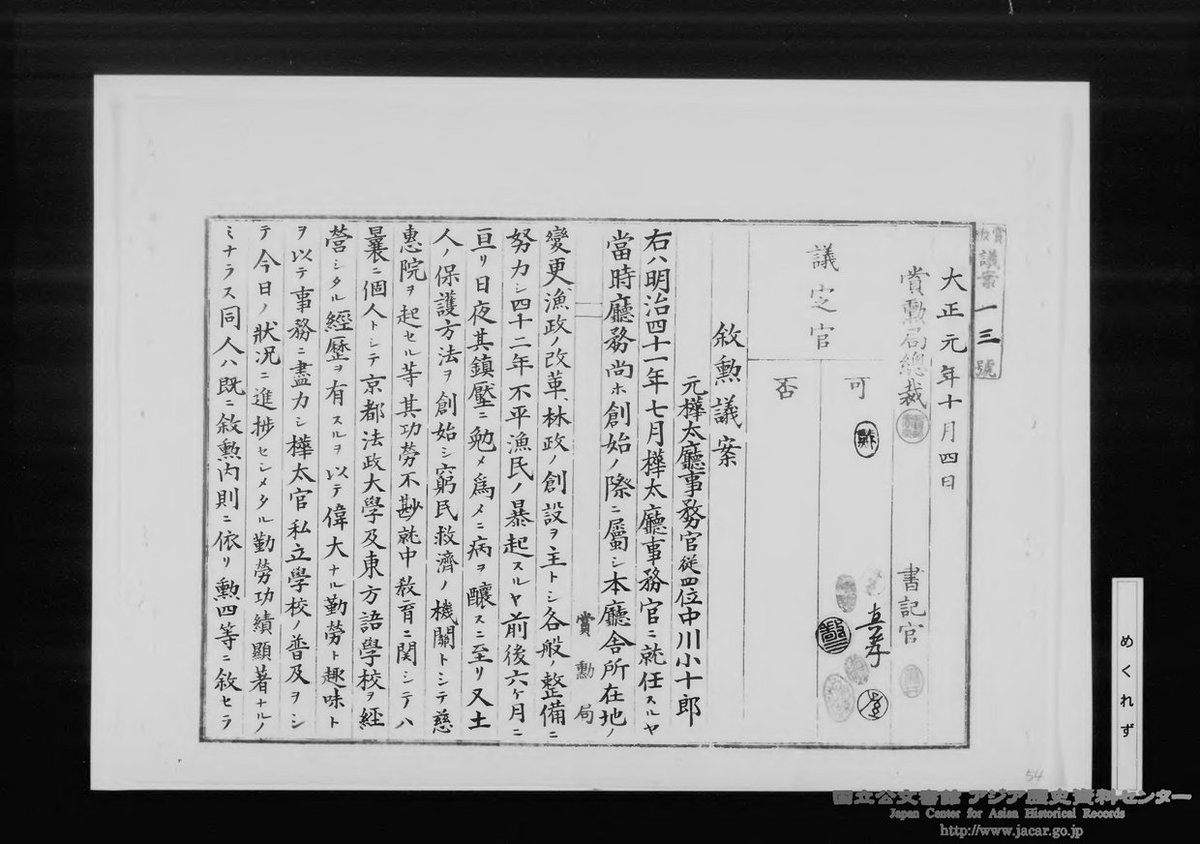 賞
議案一三號
大正元年十月四日
賞勲局總裁
書記官
議定官
可
否
敘勲議案
元樺太廳事務官從四位中川小十郎
右ハ明治四十一年七月樺太廳事務官ニ就任スルヤ
當時廳務尚ホ創始ノ際ニ屬シ本廳舎所在地ノ
賞勲局
變更、漁政ノ改革、林政ノ創設ヲ主トシ各般ノ整備ニ
努力シ四十二年不平漁民ノ暴起スルヤ前後六ケ月ニ
亘リ日夜其鎮壓ニ勉メ爲メニ病ヲ釀スニ至リ又土
人ノ保護方法ヲ創始シ窮民救濟ノ機關トシテ慈
惠院ヲ起セル等其功勞不尠就中敎育ニ関シテハ
曩ニ個人トシテ京都法政大學及東方語學校ヲ經
營シタル經歷ヲ有スルヲ以テ偉大ナル勤勞ト趣味ト
ヲ以テ事務ニ盡力シ樺太官私立學校ノ普及ヲシ
テ今日ノ狀況ニ進捗セシメタル勤勞功績顯著ナルノ
ミナラス同人ハ既ニ敘勲内則ニ依リ勲四等ニ敘セラ
めくれず
54
国立公文書館 アジア歴史資料センター
Japan Center for Asian Historical Records
http://www.jacar.go.jp